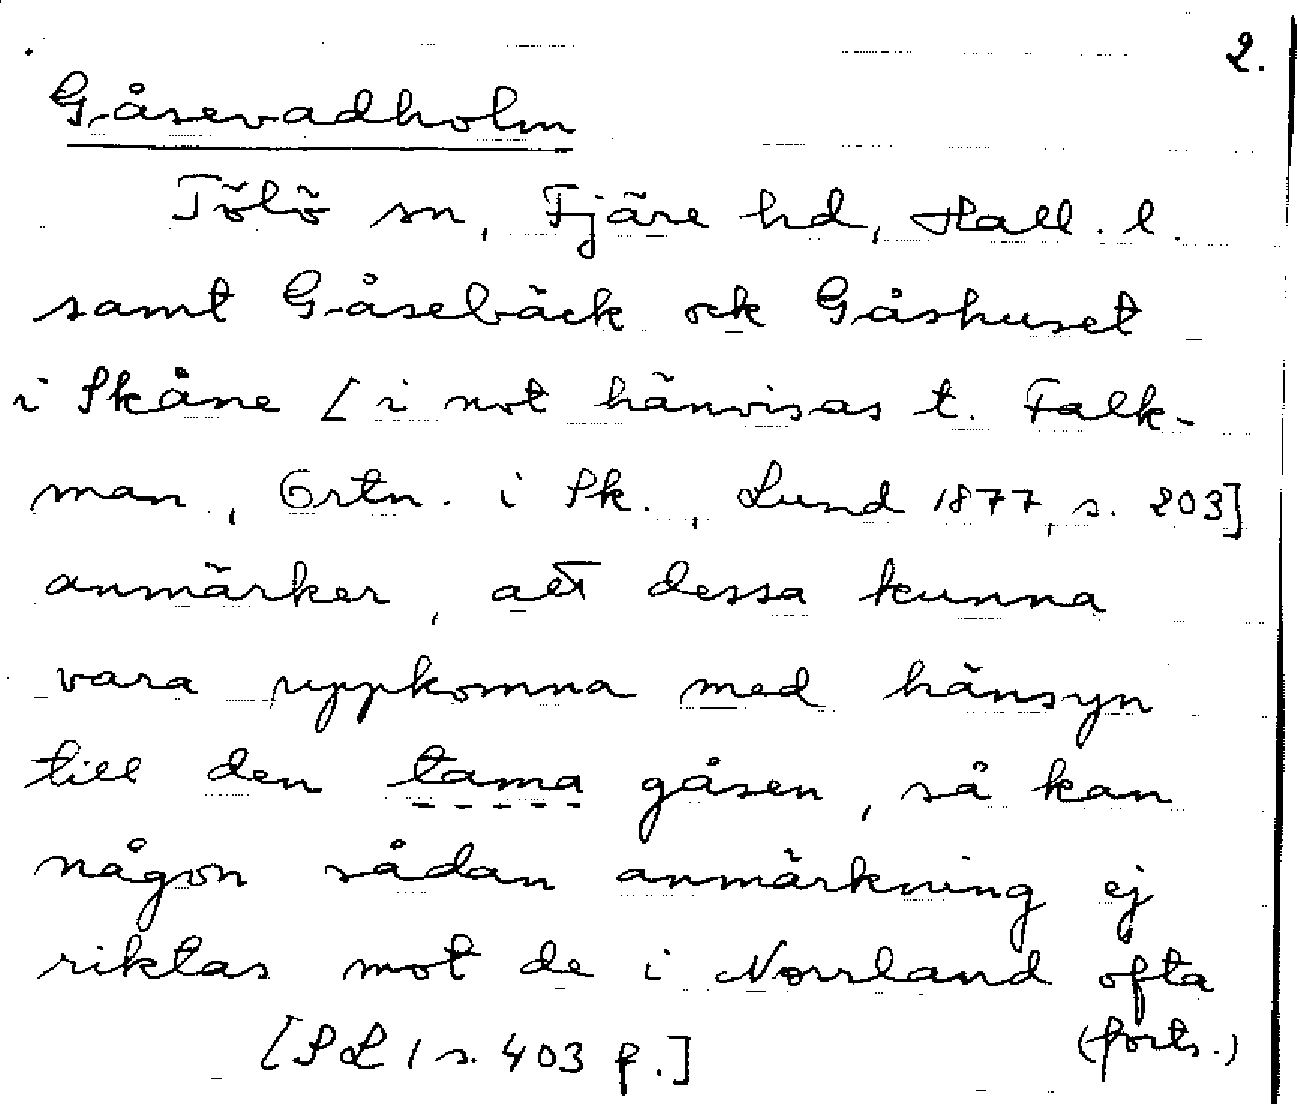 2.
Gåsevadholm
Tölö sn, Fjäre hd, Hall. l.
samt Gåsebäck ock Gåshuset
i Skåne [i not hänvisas t. Falk-
man, Ortn. i Sk., Lund 1877, s. 203]
anmärker, att dessa kunna
vara uppkomna med hänsyn
till den tama gåsen, så kan
någon sådan anmärkning ej
riktas mot de i Norrland ofta
[SL 1 s. 403 f.] (forts.)